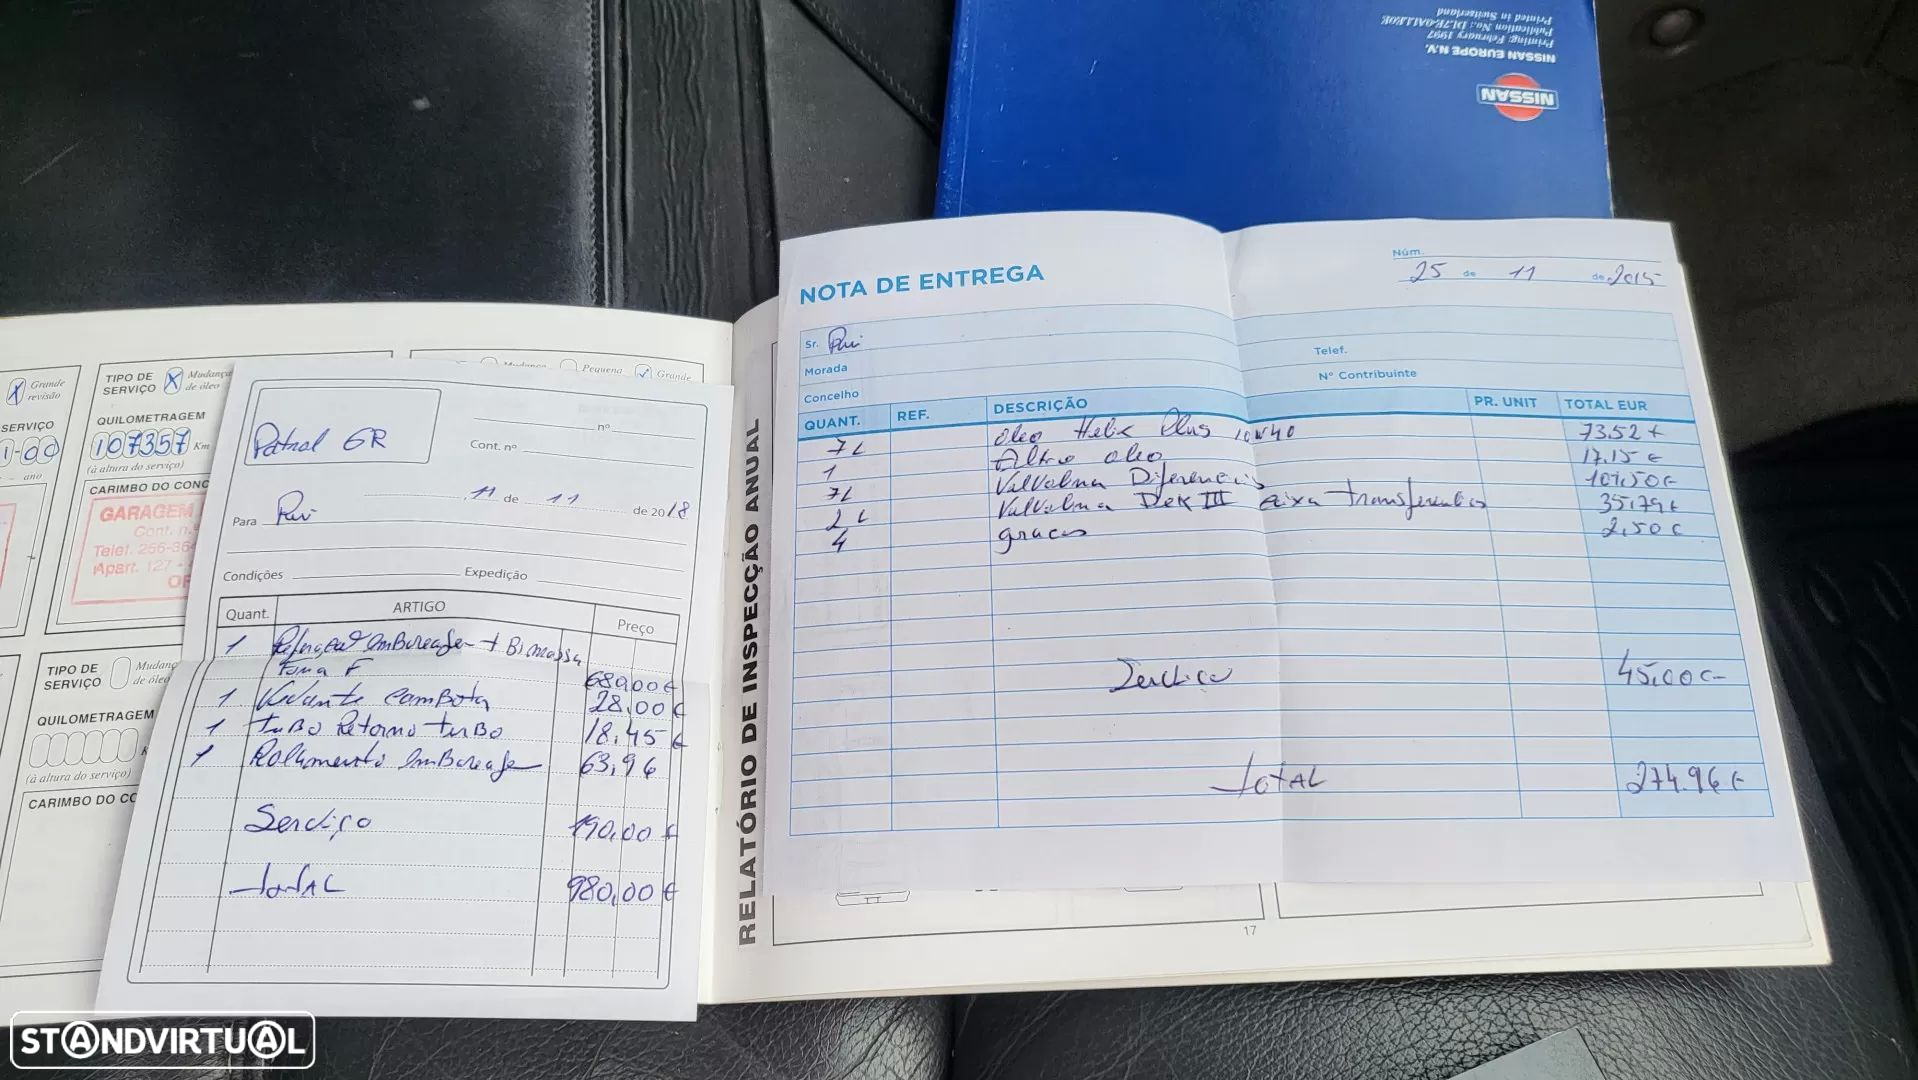 Printed in Switzerland
Publication No.: DL7E-GALLEOE
Printing: February 1997
NISSAN EUROPE N.V.
NISSAN
NOTA DE ENTREGA
Núm.
25 de 11 de 2015
Sr. Rui
Morada
Telef.
Concelho
Nº Contribuinte
QUANT. REF. DESCRIÇÃO PR. UNIT TOTAL EUR
7L oleo Helix Plus 10W40 73.52 €
1 oleo 17.15 €
7L Valvolina Diferenciais 101,50 €
2L Valvolina Dex III caixa transferencias 35,79 €
4 2,50 €
Serviço 45,00 €
total 274.96 €
RELATÓRIO DE INSPECÇÃO ANUAL
17
Grande revisão
TIPO DE SERVIÇO X Mudança de óleo
Pequena
Grande
SERVIÇO
QUILOMETRAGEM
107357 Km
(à altura do serviço)
ano
CARIMBO DO CONC
GARAGEM
Cont. n.
Telef. 256-36
Apart. 127 -
TIPO DE SERVIÇO Mudanç de óleo
QUILOMETRAGEM
(à altura do serviço)
CARIMBO DO CO
Patrol GR
nº
Cont. nº
11 de 11 de 2018
Para Rui
Condições Expedição
Quant. ARTIGO Preço
1 embreagem + Bimassa
680,00 €
1 Vedante Cambota 28,00 €
1 tuBo Retorno turBo 18,45 €
1 Rolhamento embreagem 63,96
Serviço 190,00 €
total 980,00 €
STANDVIRTUAL